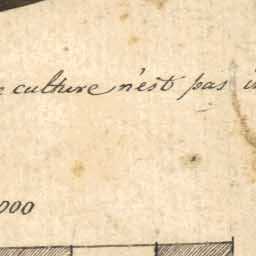 culture n'est pas
000